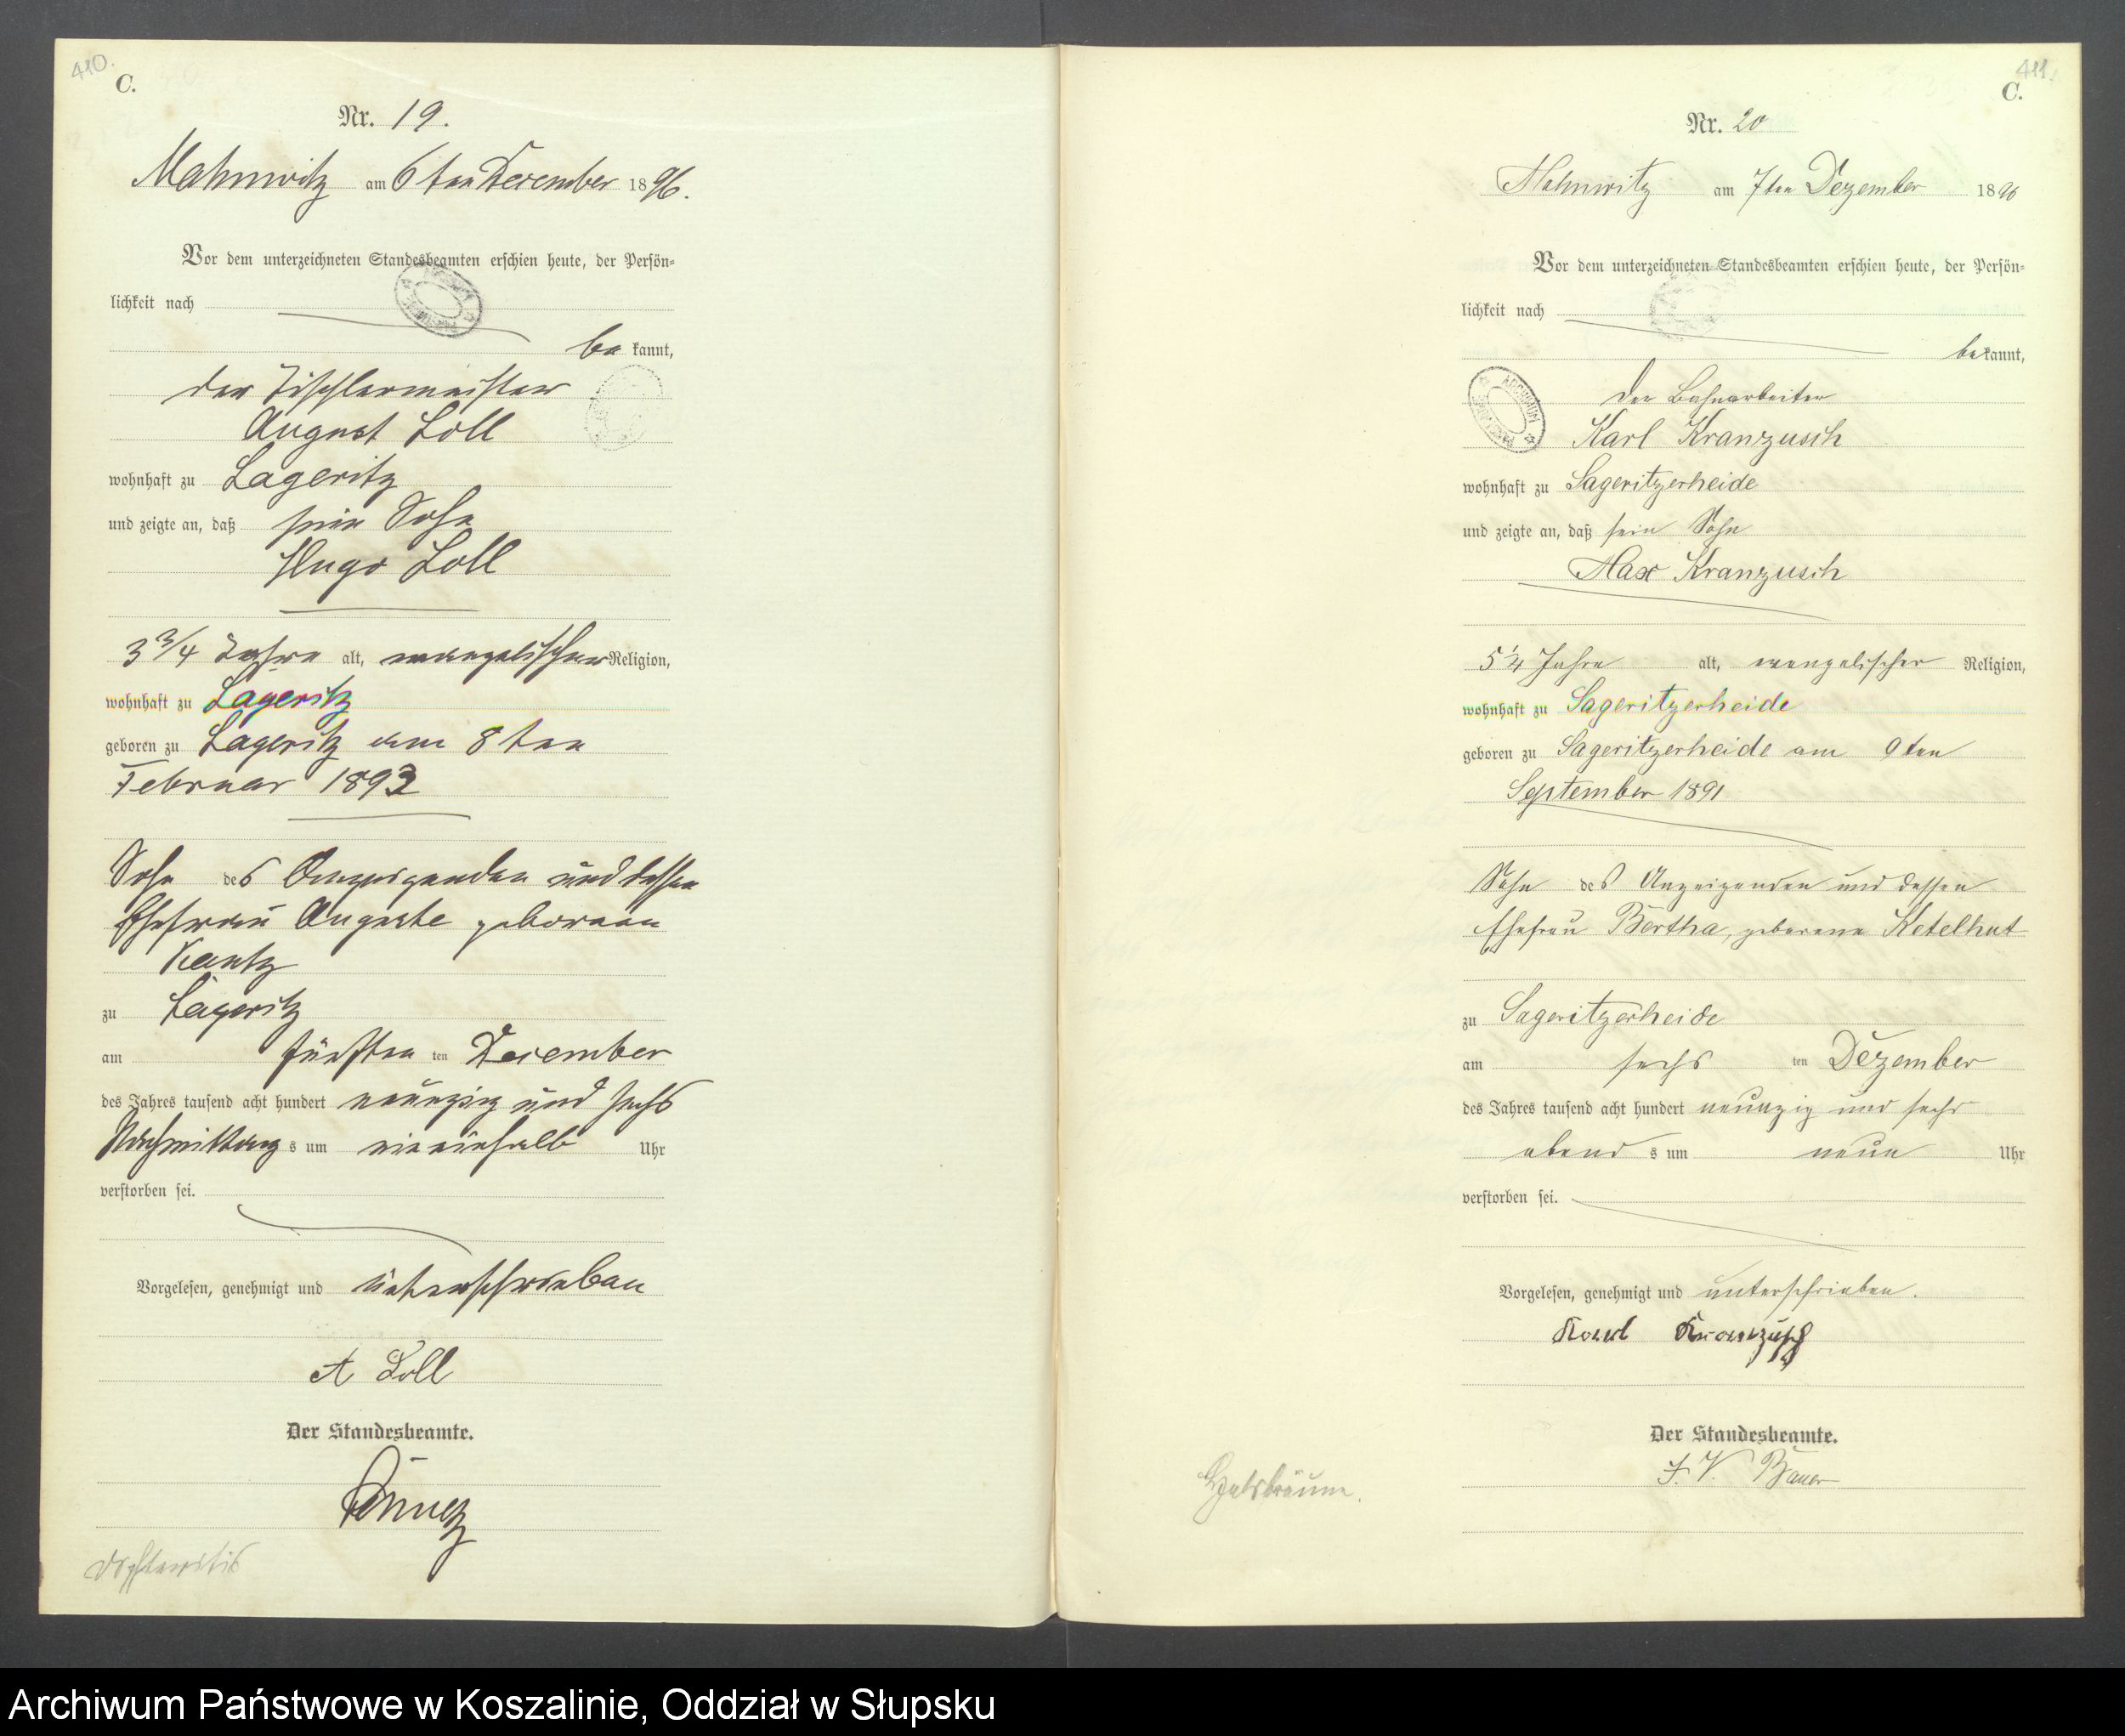 410.
C.
Nr. 19.
Mahnwitz am 6ten Dezember 1896.
Vor dem unterzeichneten Standesbeamten erschien heute, der Persön=
lichkeit nach
be kannt,
der Tischlermeister
August Loll
wohnhaft zu Lageritz
und zeigte an, daß sein Sohn
Hugo Loll
3 3/4 Jahre alt, evangelischer Religion,
wohnhaft zu Lageritz
geboren zu Lageritz am 8ten
Februar 1893
Sohn des Anzeigenden und dessen
Ehefrau Auguste geborenen
Kautz
zu Lageritz
am fünften ten Dezember
des Jahres tausend acht hundert neunzig und sechs
Nachmittag s um ein einhalb Uhr
verstorben sei.
Vorgelesen, genehmigt und unterschrieben
A Loll
Der Standesbeamte.
Diphteritis
411.
C.
Nr. 20
Mahnwitz am 7ten Dezember 1896
Vor dem unterzeichneten Standesbeamten erschien heute, der Persön=
lichkeit nach
be kannt,
der Bahnarbeiter
Karl Kranzusch
wohnhaft zu Sageritzerheide
und zeigte an, daß sein Sohn
Max Kranzusch
5 1/4 Jahre alt, evangelischer Religion,
wohnhaft zu Sageritzerheide
geboren zu Sageritzerheide am 9ten
September 1891
Sohn des Anzeigenden und dessen
Ehefrau Bertha, geborene Ketelhut
zu Sageritzerheide
am sechs ten Dezember
des Jahres tausend acht hundert neunzig und sechs
abend s um neun Uhr
verstorben sei.
Vorgelesen, genehmigt und unterschrieben.
Karl Kranzusch
Der Standesbeamte.
J. V. Bauer
Halsbräune.
Archiwum Państwowe w Koszalinie, Oddział w Słupsku